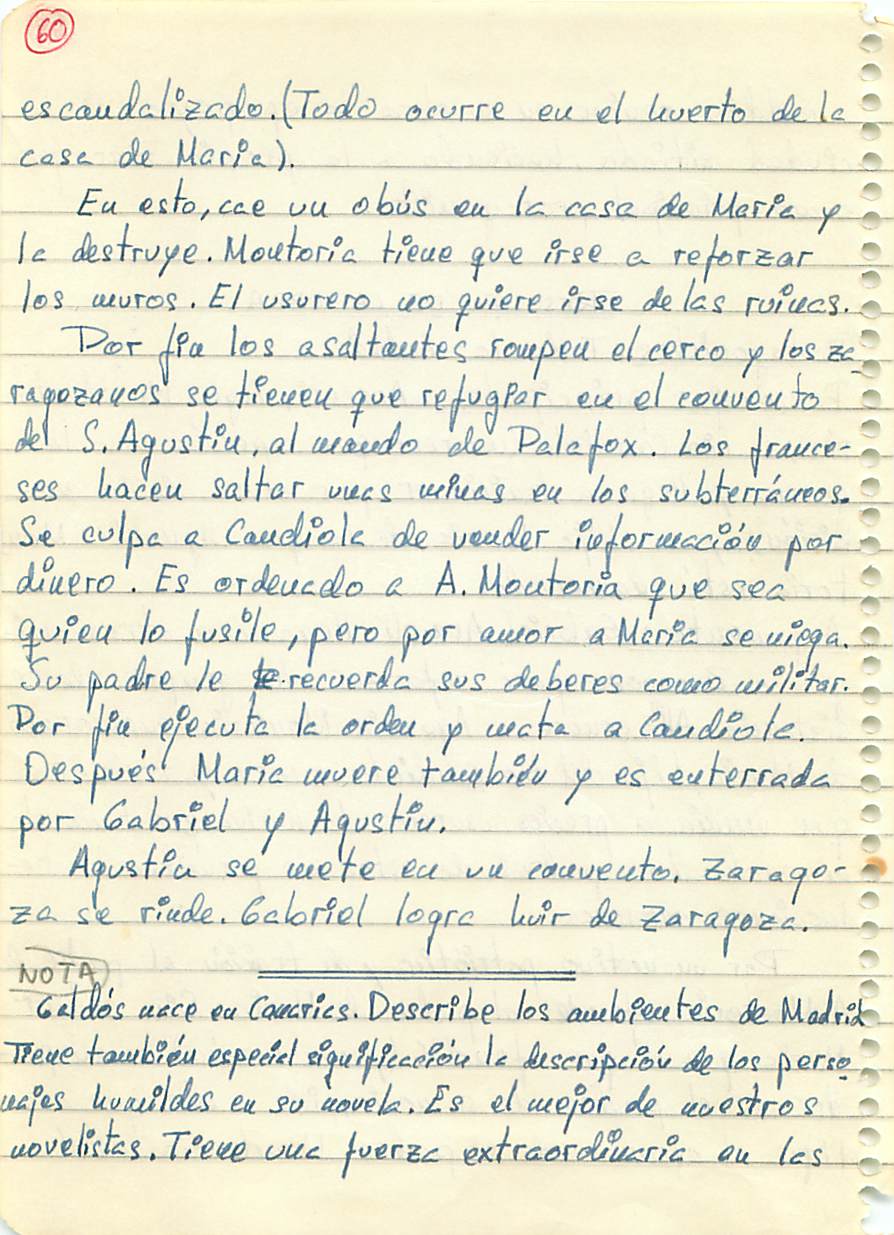 60
escandalizado. (Todo ocurre en el huerto de la
casa de María).
En esto, cae un obús en la casa de María y
la destruye. Montoria tiene que irse a reforzar
los muros. El usurero no quiere irse de las ruinas.
Por fin los asaltantes rompen el cerco y los za_
ragozanos se tienen que refugiar en el convento
de S. Agustín, al mando de Palafox. Los france-
ses hacen saltar unas minas en los subterráneos.
Se culpa a Candiola de vender información por
dinero. Es ordenado a A. Montoria que sea
quien lo fusile, pero por amor a María se niega.
Su padre le recuerda sus deberes como militar.
Por fin ejecuta la orden y mata a Candiola.
Después María muere también y es enterrada
por Gabriel y Agustín.
Agustín se mete en un convento. Zarago-
za se rinde. Gabriel logra huir de Zaragoza.
NOTA
Galdós nace en Canarias. Describe los ambientes de Madrid
Tiene también especial significación la descripción de los perso_
najes humildes en su novela. Es el mejor de nuestros
novelistas. Tiene una fuerza extraordinaria en las